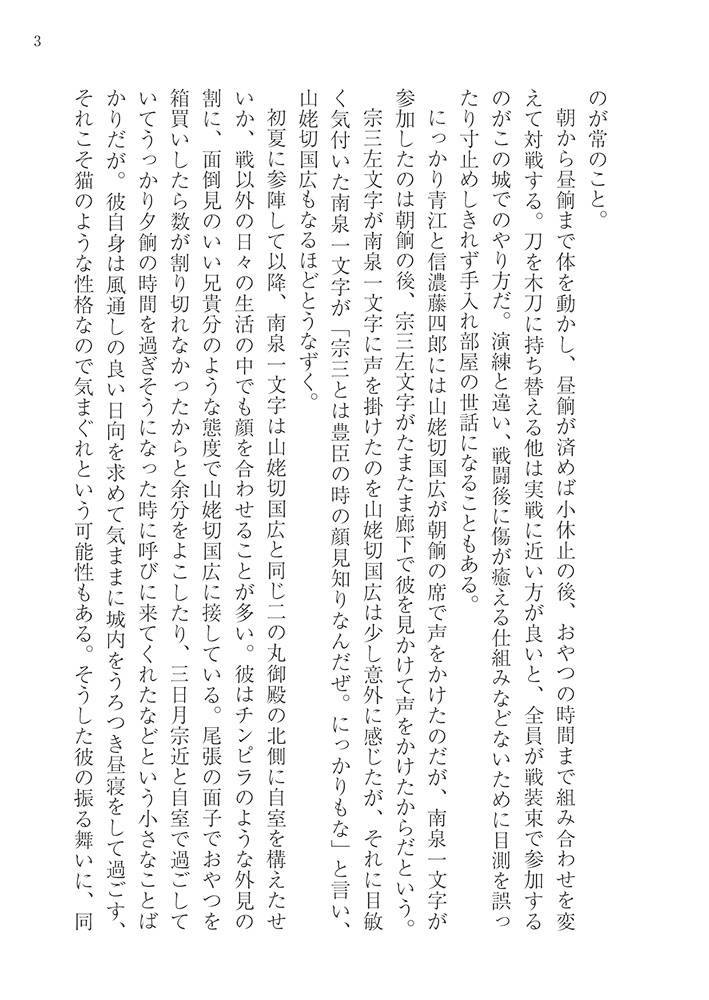 3
のが常のこと。
　朝から昼餉まで体を動かし、昼餉が済めば小休止の後、おやつの時間まで組み合わせを変
えて対戦する。刀を木刀に持ち替える他は実戦に近い方が良いと、全員が戦装束で参加する
のがこの城でのやり方だ。演練と違い、戦闘後に傷が癒える仕組みなどないために目測を誤っ
たり寸止めしきれず手入れ部屋の世話になることもある。
　にっかり青江と信濃藤四郎には山姥切国広が朝餉の席で声をかけたのだが、南泉一文字が
参加したのは朝餉の後、宗三左文字がたまたま廊下で彼を見かけて声をかけたからだという。
　宗三左文字が南泉一文字に声を掛けたのを山姥切国広は少し意外に感じたが、それに目敏
く気付いた南泉一文字が「宗三とは豊臣の時の顔見知りなんだぜ。にっかりもな」と言い、
山姥切国広もなるほどとうなずく。
　初夏に参陣して以降、南泉一文字は山姥切国広と同じ二の丸御殿の北側に自室を構えたせ
いか、戦以外の日々の生活の中でも顔を合わせることが多い。彼はチンピラのような外見の
割に、面倒見のいい兄貴分のような態度で山姥切国広に接している。尾張の面子でおやつを
箱買いしたら数が割り切れなかったからと余分をよこしたり、三日月宗近と自室で過ごして
いてうっかり夕餉の時間を過ぎそうになった時に呼びに来てくれたなどという小さなことば
かりだが。彼自身は風通しの良い日向を求めて気ままに城内をうろつき昼寝をして過ごす、
それこそ猫のような性格なので気まぐれという可能性もある。そうした彼の振る舞いに、同